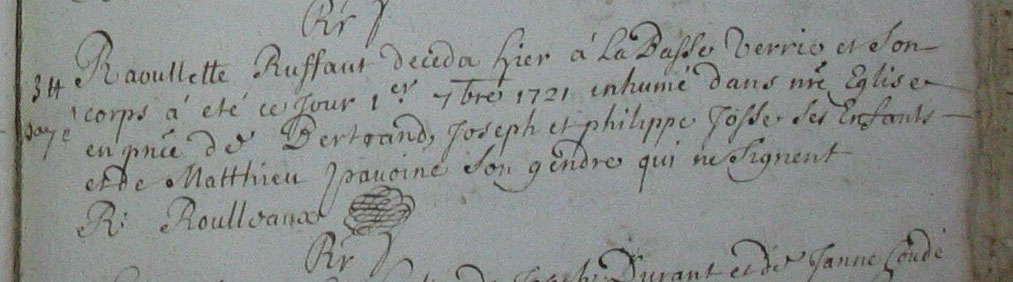 Rr
Raoullette Ruffaut deceda hier á La Basse Verrie et son
34 corps á eté ce jour 1er 7bre 1721 inhumé dans nre Eglise
en pnce de Bertrand, Joseph et philippe Josse ses Enfants
et de Matthieu pavoine son gendre qui ne signent
R: Roulleaux
Rr
Joseph Durant et de Janne Coudé